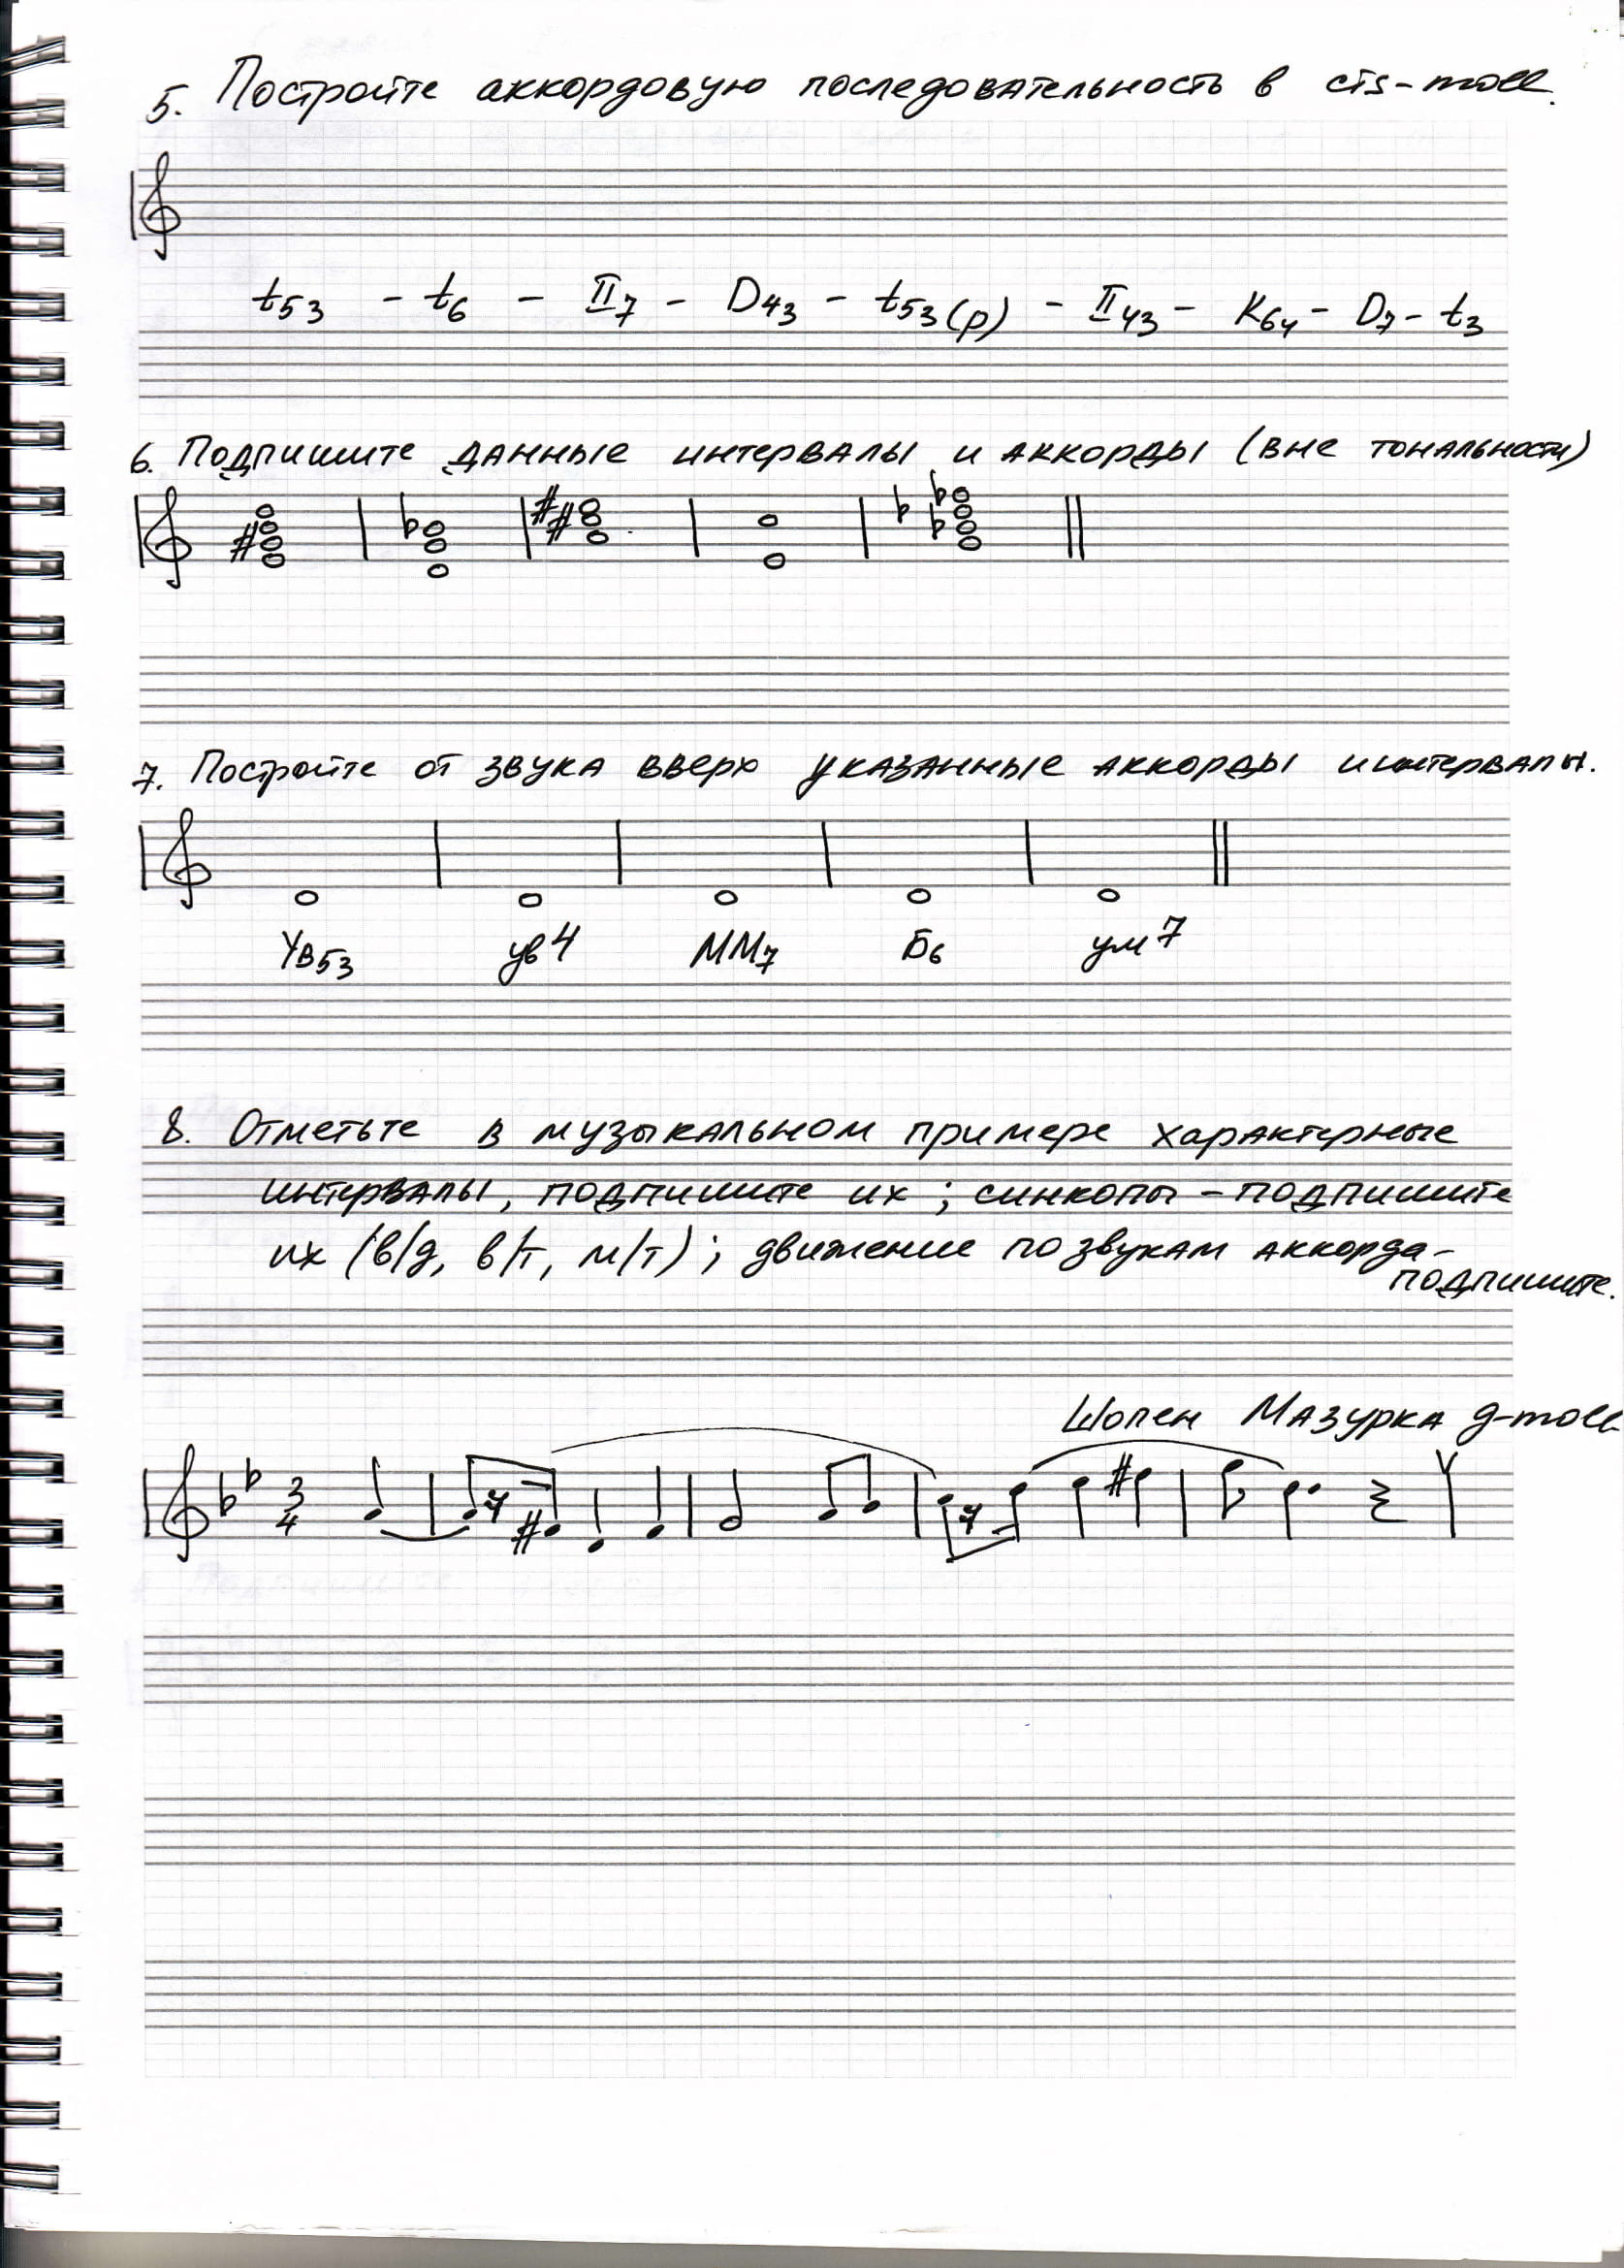 5. Постройте аккордовую последовательность в cis-moll.
t53 - t6 - II7 - D43 - t53(р) - II43 - K64 - D7 - t3
6. Подпишите данные интервалы и аккорды (вне тональности)
7. Постройте от звука вверх указанные аккорды и интервалы.
Ув53 ув4 ММ7 Б6 ум7
8. Отметьте в музыкальном примере характерные
интервалы, подпишите их; синкопы - подпишите
их (в/д, в/т, м/т); движение по звукам аккорда -
подпишите.
Шопен Мазурка g-moll
3
4